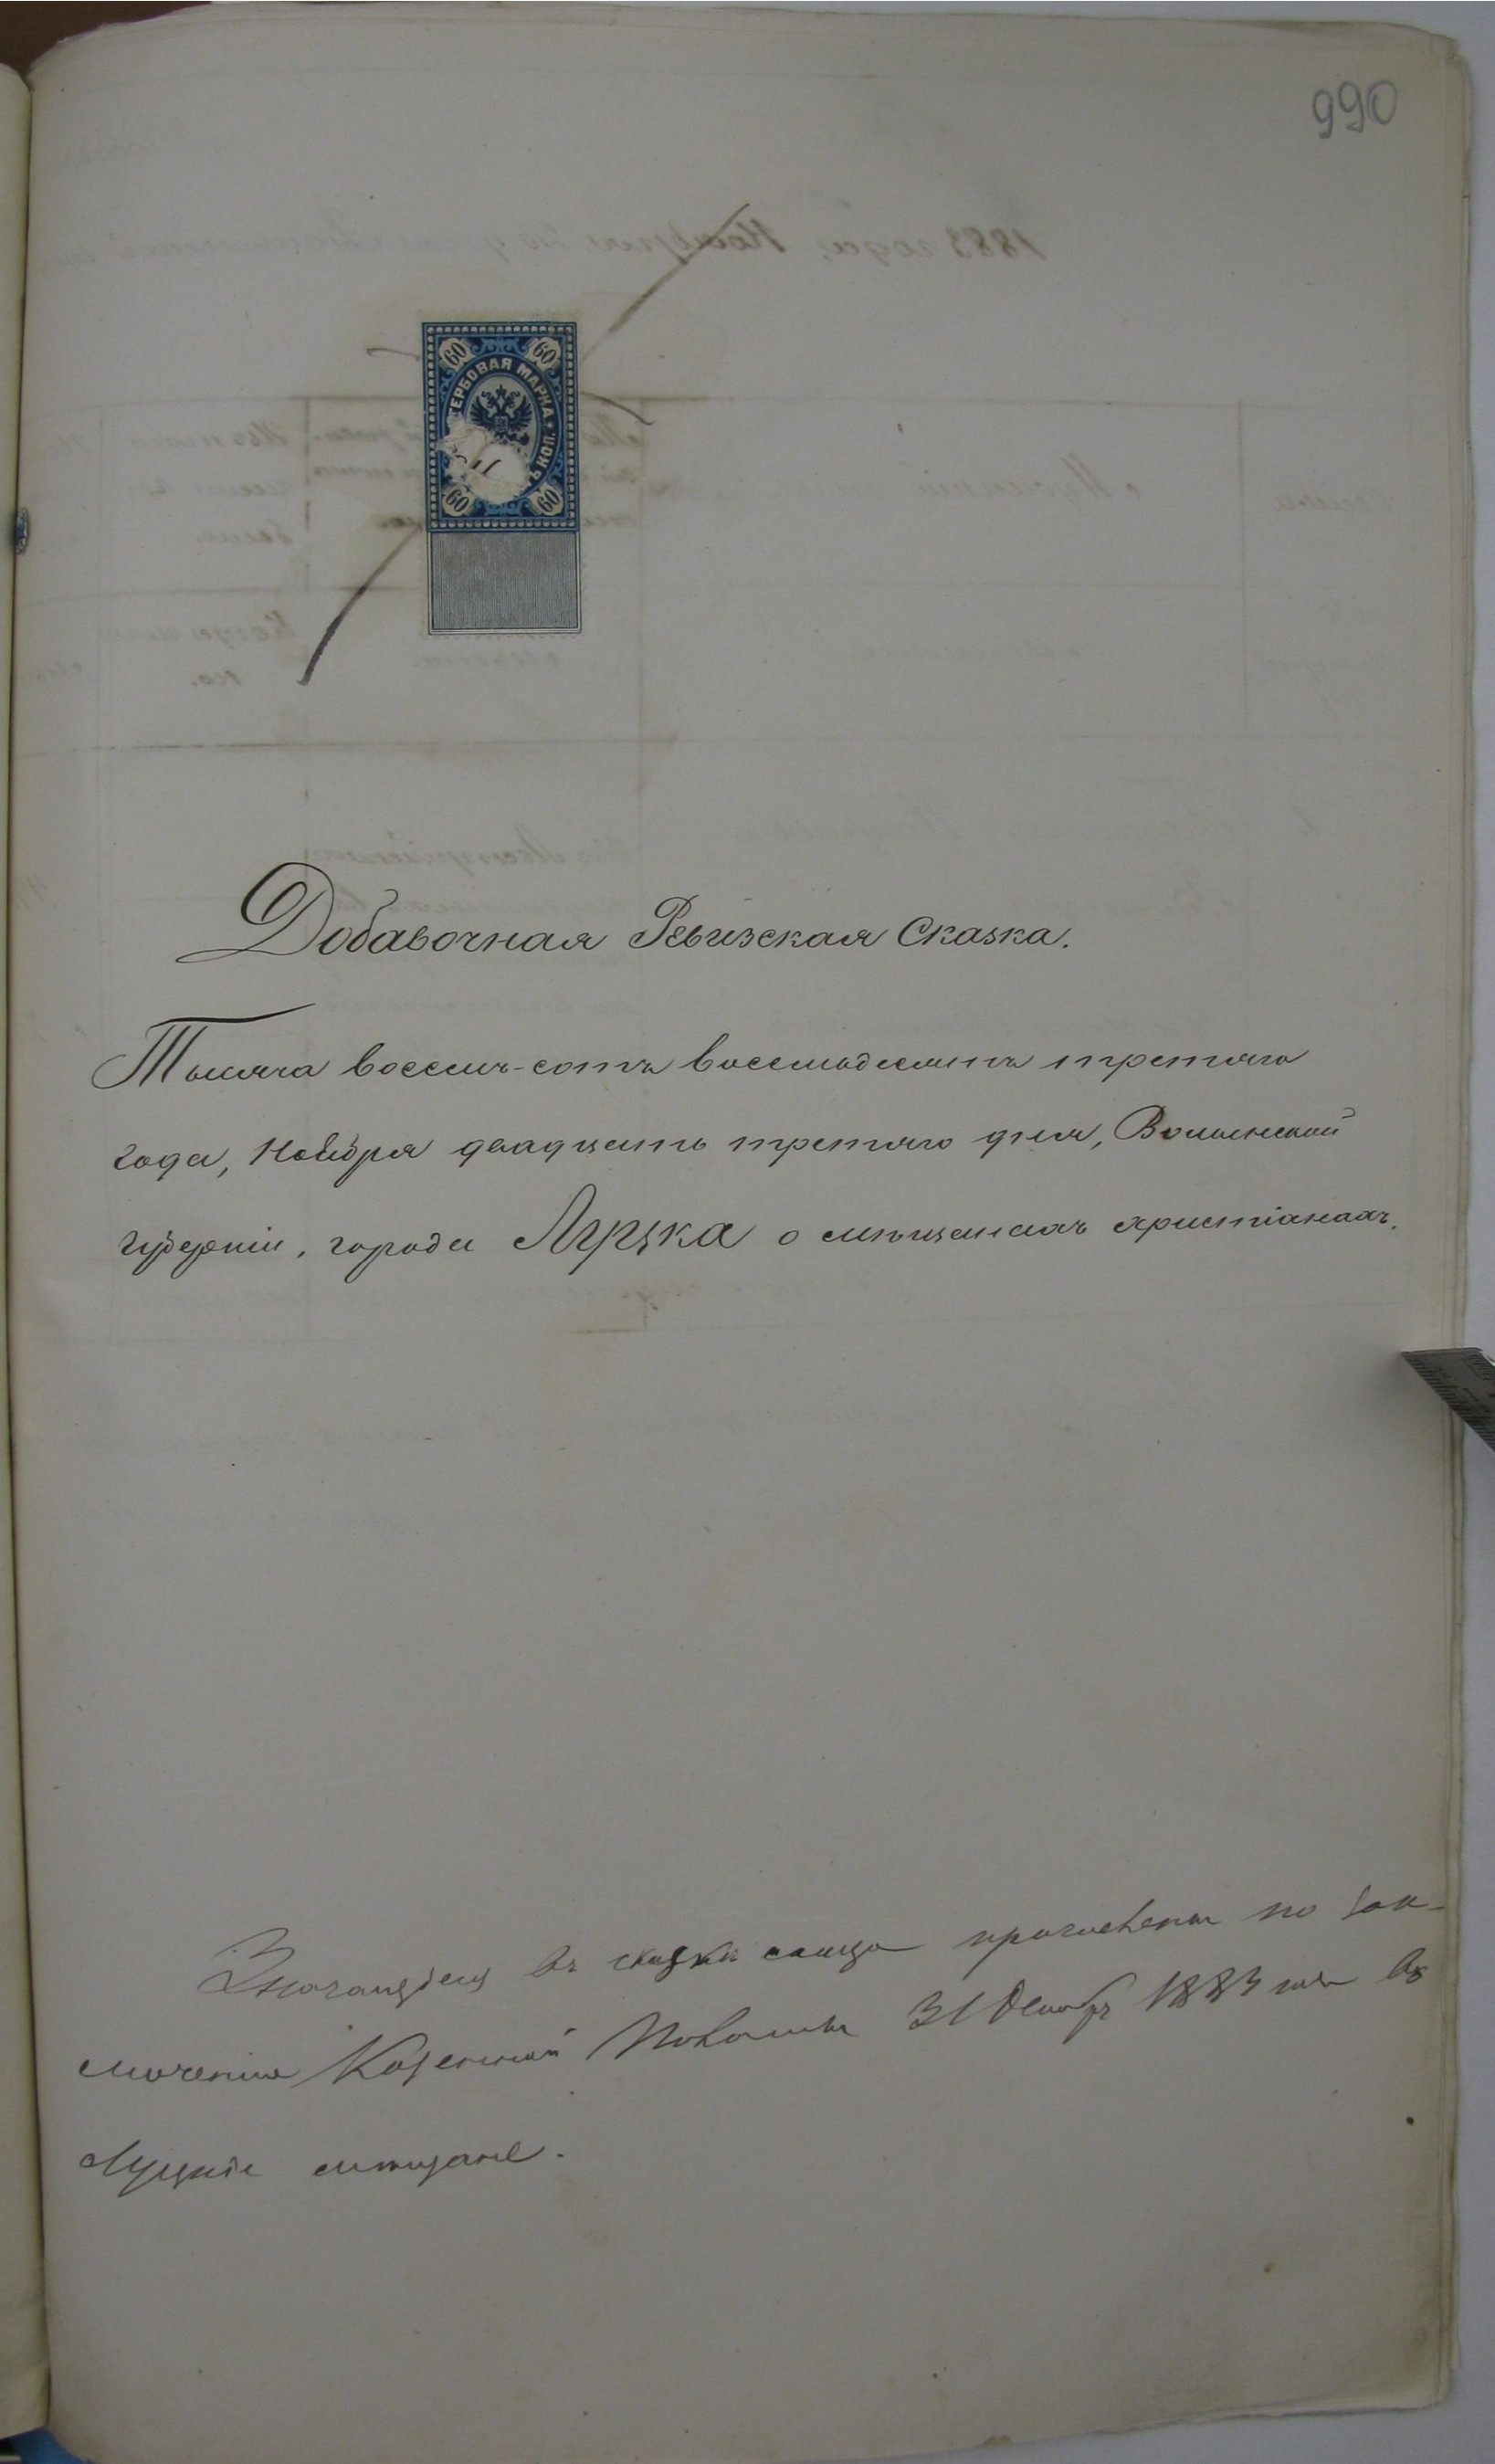 990
60 60
ГЕРБОВАЯ МАРКА
КОП.
60 60
Добавочная Ревизская Сказка.
Тысяча восемь-сотъ восемьдесятъ третьяго
года, Ноября двадцать третьяго дня, Волынской
губерніи, города Луцка о мѣщанахъ христіанахъ.
Значащіеся въ сказкѣ лица причислены по зак-
люченію Казенной Палаты 31 Декабр 1883 года въ
Луцкіе мѣщане.